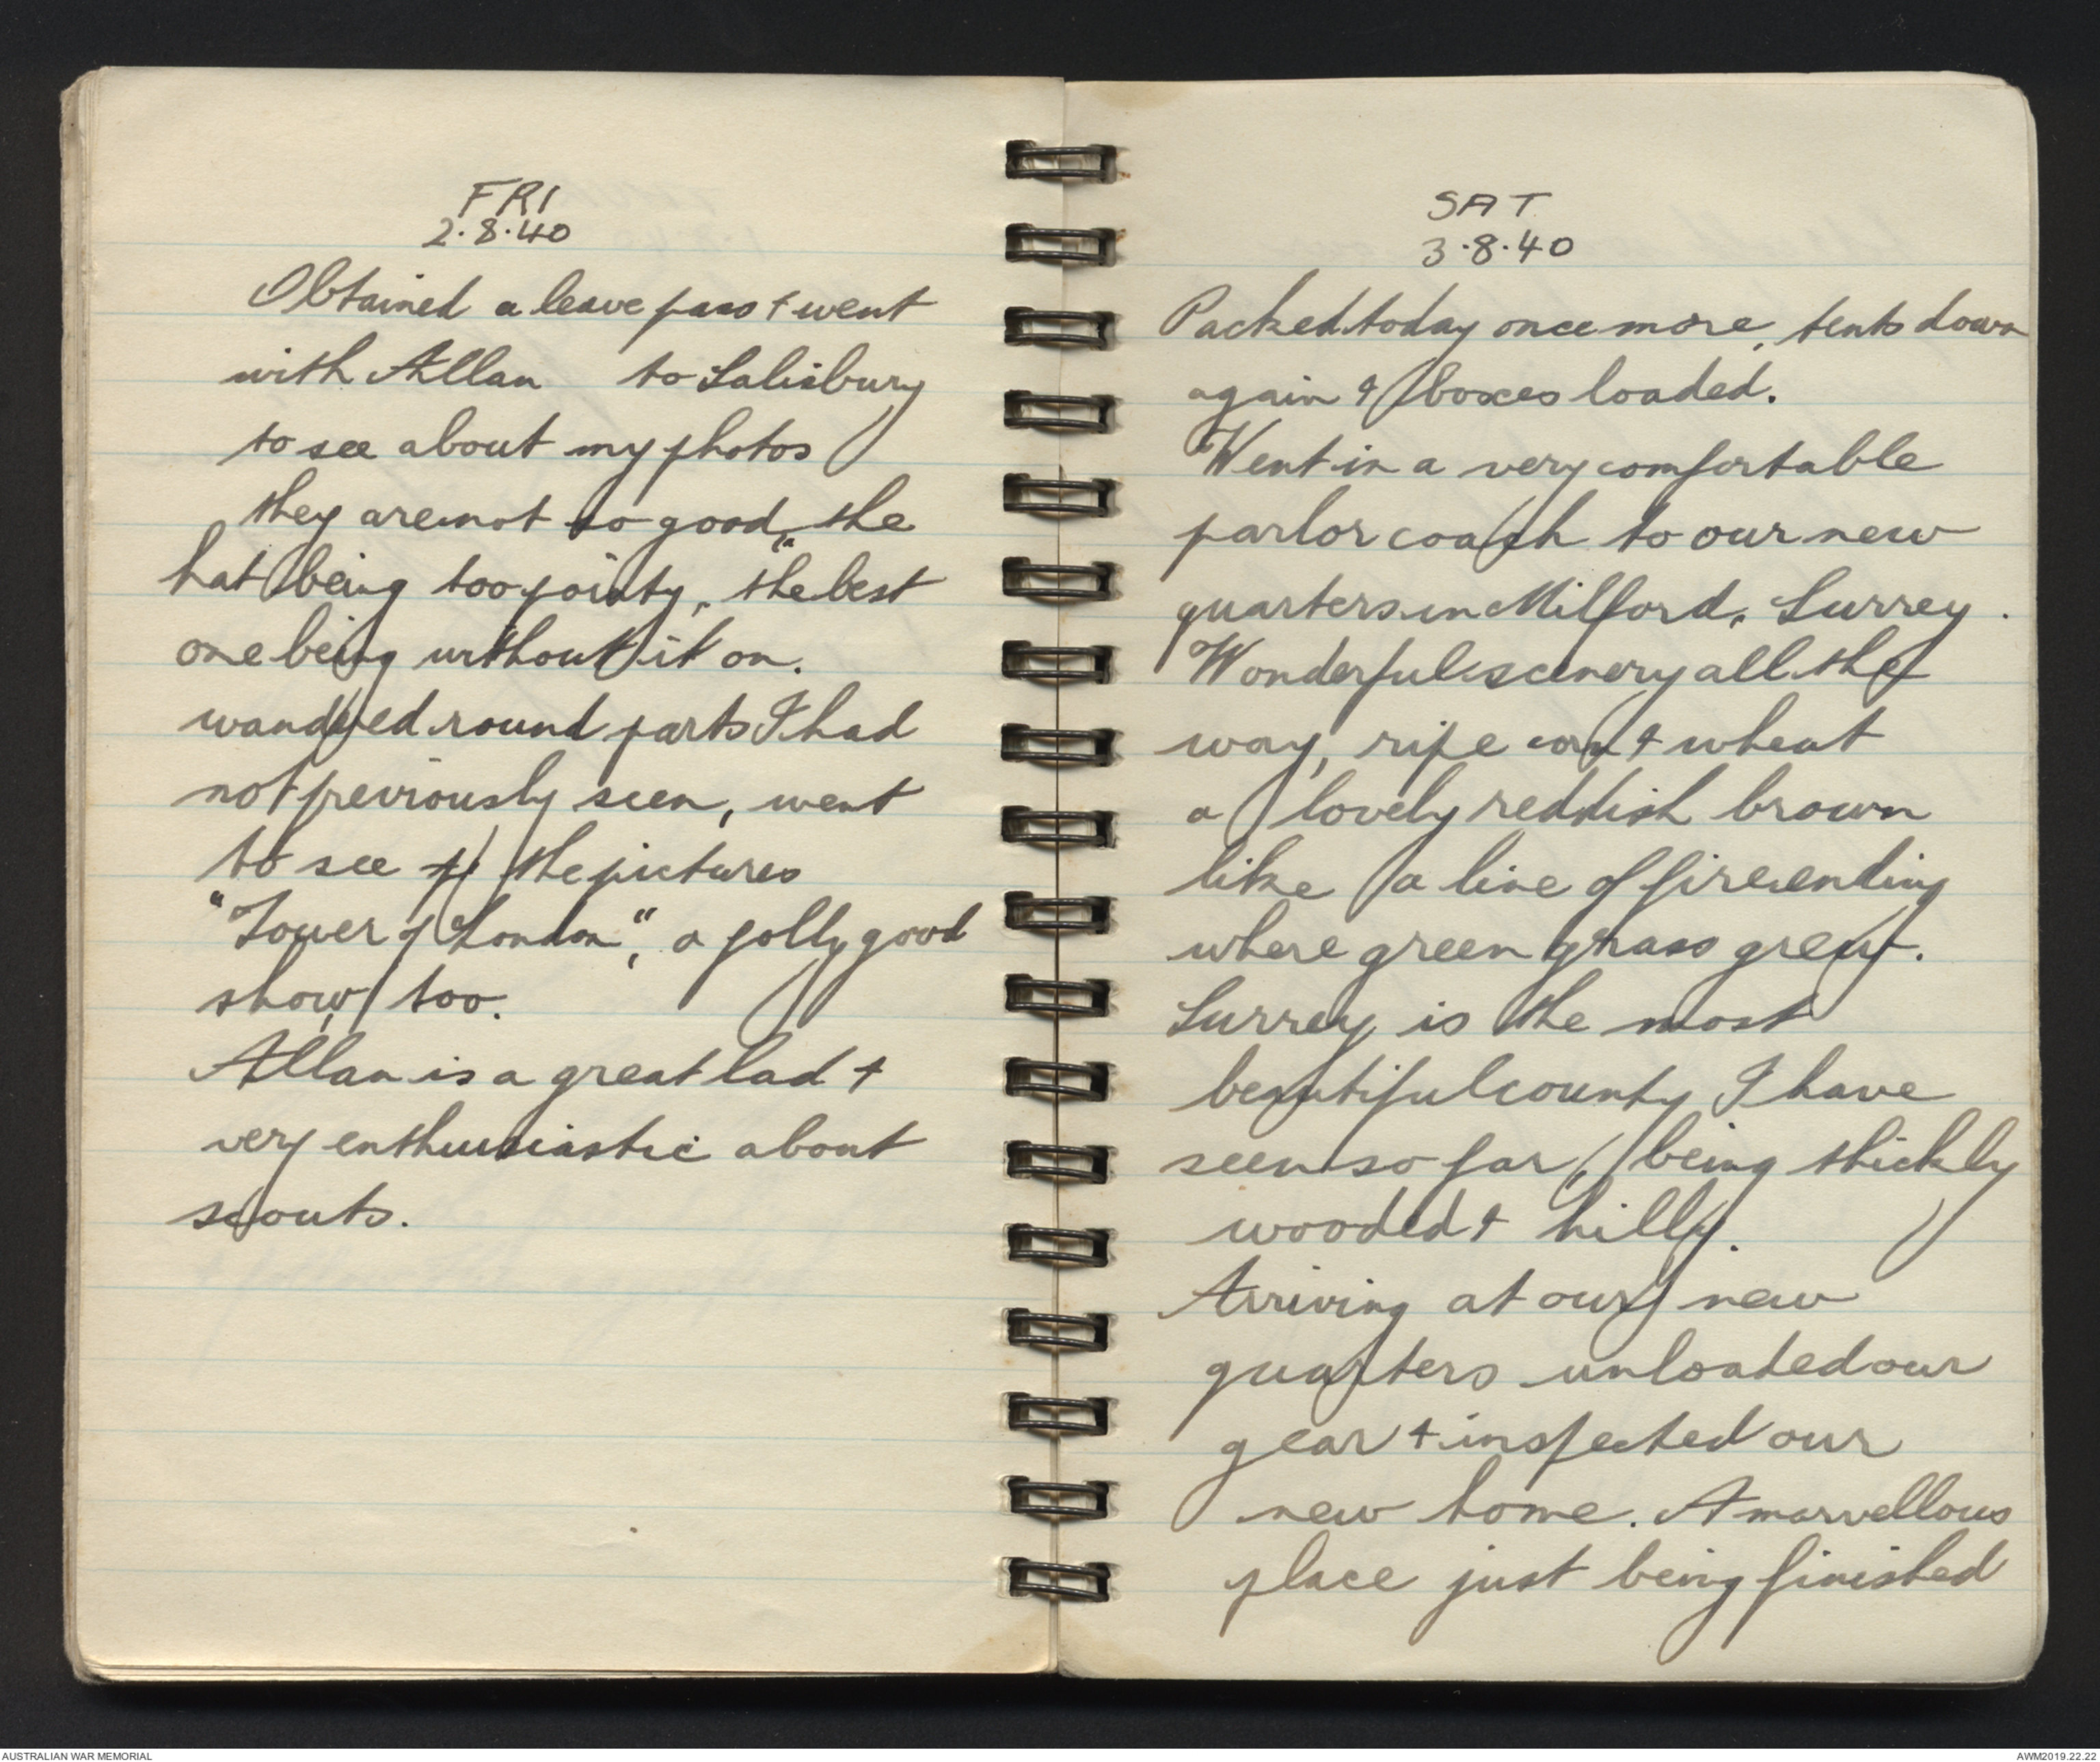 FRI
2.8.40
Obtained a leave pass + went
with Allan to Salisbury
to see about my photos
they are not so good, the
hat being too pointy, "the best
one being without it on.
wandered round parts I had
not previously seen, went
to see the pictures
"Tower of London", a jolly good
show, too.
Allan is a great lad +
very enthusiastic about
scouts.
SAT
3.8.40
Packed today once more, tents down
again + boxes loaded.
Went in a very comfortable
parlor coach to our new
quarters in Milford, Surrey.
Wonderful scenery all the
way, ripe corn + wheat
a lovely reddish brown
like a line of fire ending
where green grass grew.
Surrey is the most
beautiful county I have
seen so far, being thickly
wooded + hilly.
Arriving at our new
quarters unloaded our
gear + inspected our
new home. A marvellous
place just being finished
AUSTRALIAN WAR MEMORIAL
AWM2019.22.22